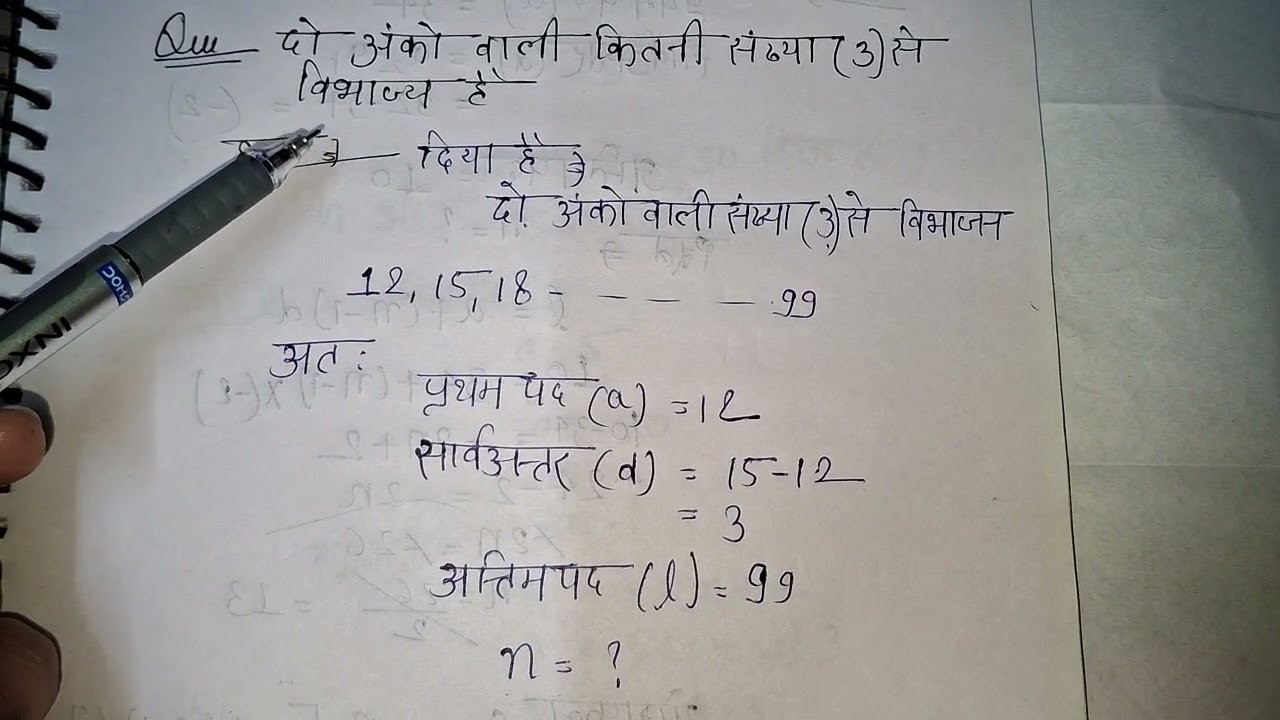 Que दो अंको वाली कितनी संख्या (3) से
विभाज्य है
दिया है
दो अंको वाली संख्या (3) से विभाजन
12, 15, 18 - - - - 99
अत :
प्रथम पद (a) = 12
सार्वअन्तर (d) = 15-12
= 3
अन्तिम पद (l) = 99
n = ?
DOMS
INXO